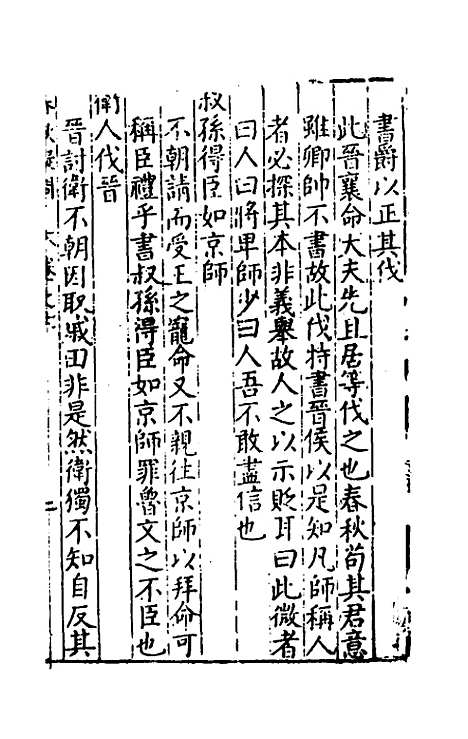 書爵以正其伐
此晉襄命大夫先且居等伐之也春秋苟其君意
雖卿帥不書故此伐特書晉侯以是知凡師稱人
者必探其本非義舉故人之以示貶耳曰此微者
曰人曰將卑師少曰人吾不敢盡信也
叔孫得臣如京師
不朝請而受王之寵命又不親往京師以拜命可
稱臣禮乎書叔孫得臣如京師罪魯文之不臣也
衛人伐晉
晉討衛不朝因取戚田非是然衛獨不知自反其